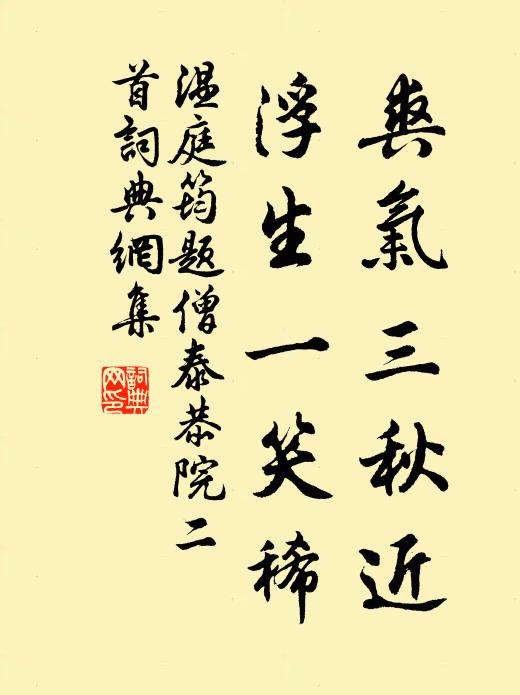 爽氣三秋近
浮生一笑稀
温庭筠題僧泰恭院二
首詞典網集
詞典
网印